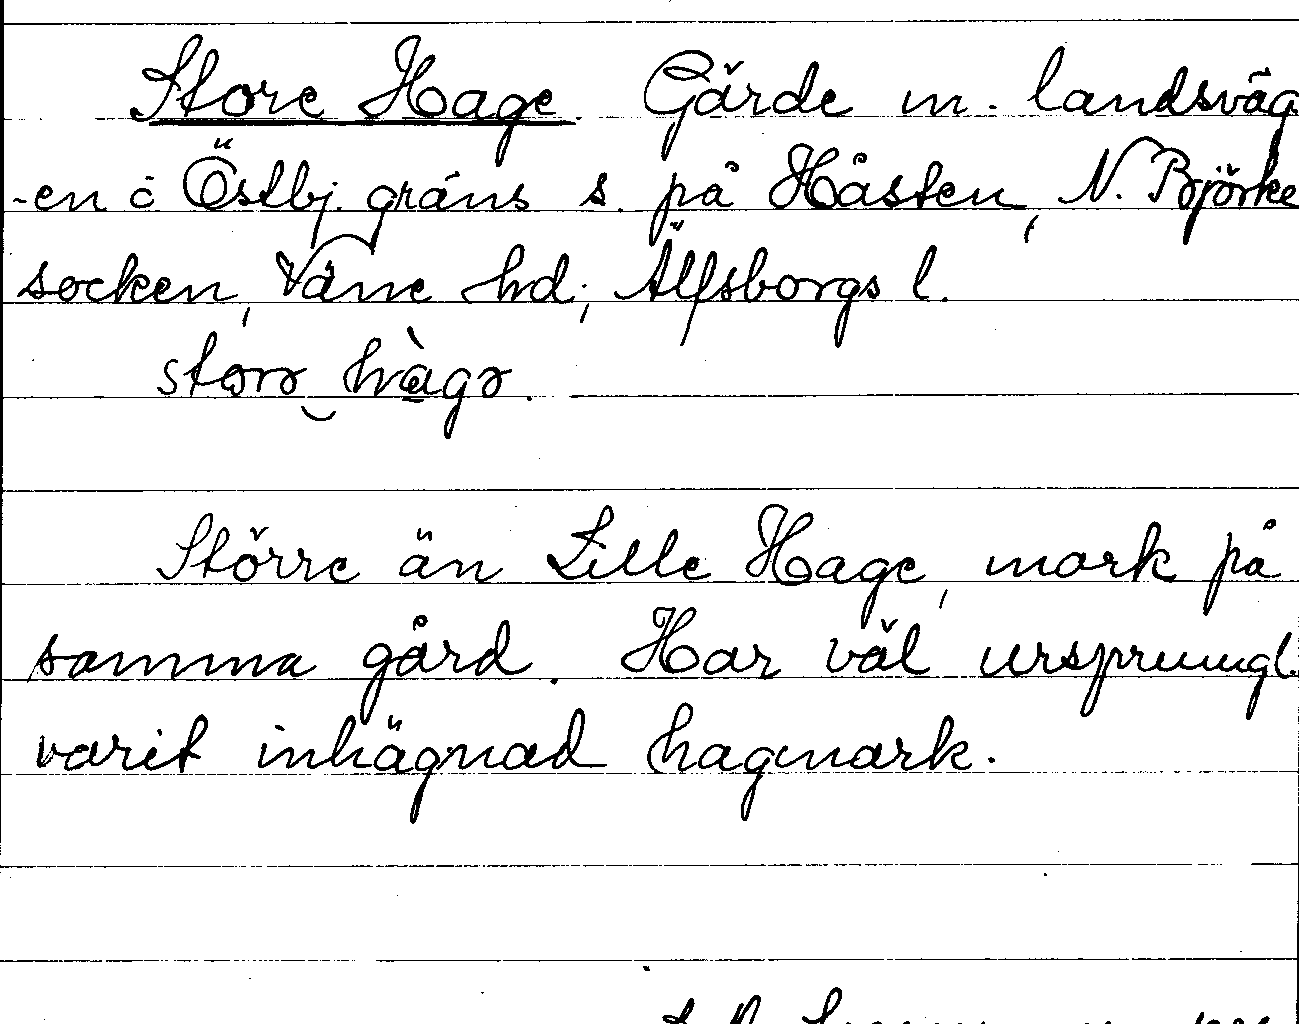 Store Hage Gärde m. landsväg
-en o Östbj. gräns s. på Håsten, N. Björke
socken, Väne hd; Älfsborgs l.
storə hàgə.
Större än Lille Hage, mark på
samma gård. Har väl ursprungl.
varit inhägnad hagmark.